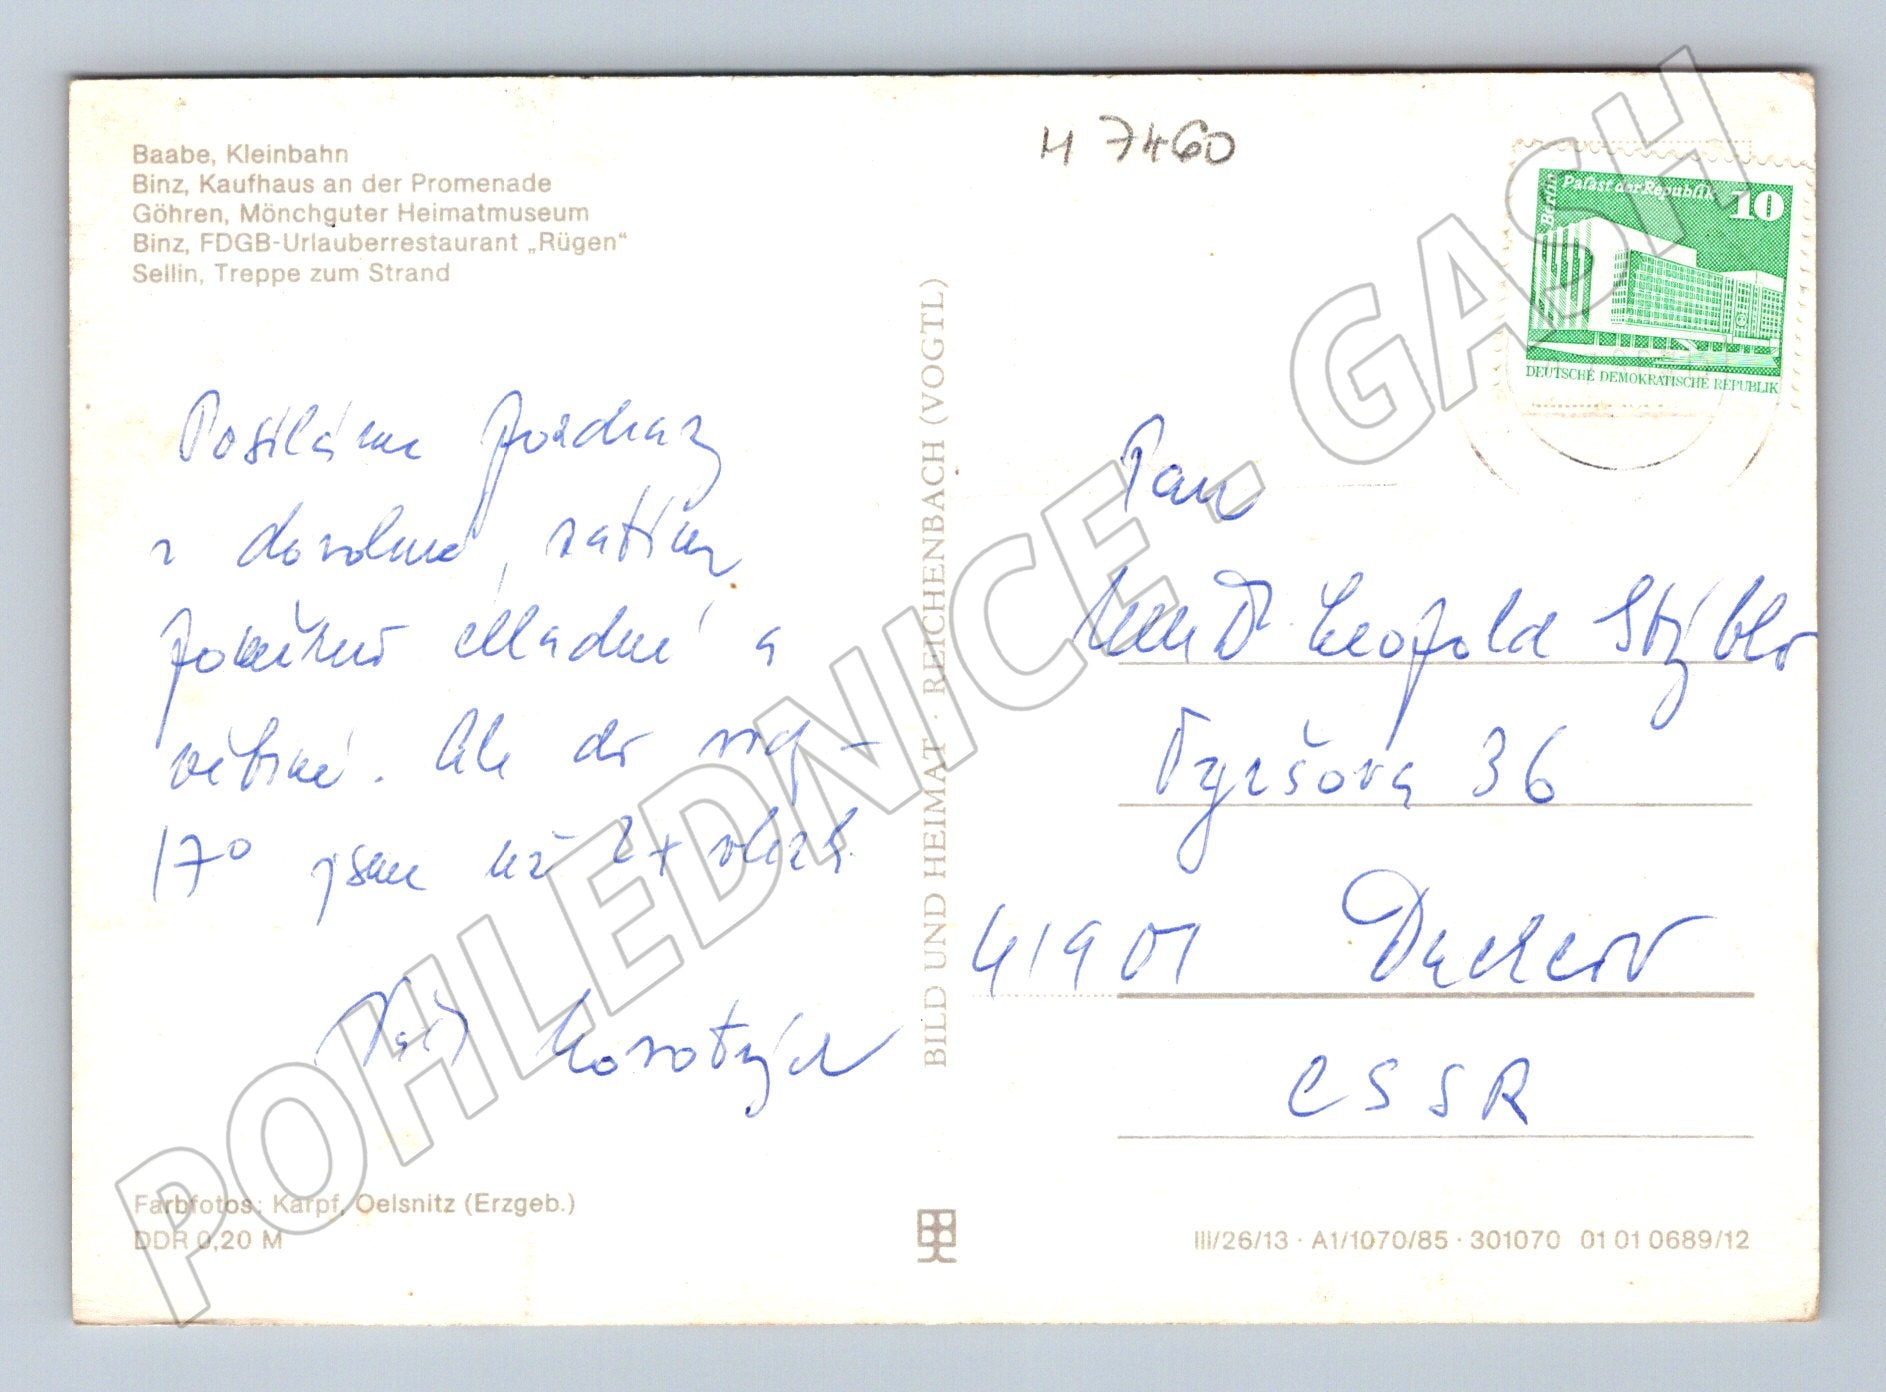 Baabe, Kleinbahn
Binz, Kaufhaus an der Promenade
Göhren, Mönchguter Heimatmuseum
Binz, FDGB-Urlauberrestaurant „Rügen“
Sellin, Treppe zum Strand
Posíláme pozdrav
z dovolené, zatím
poměrně chladné a
větrné. Ale do vody -
17° jsme už 2x vlezli.
Vaši
BILD UND HEIMAT · REICHENBACH (VOGTL)
H 7460
Berlin
Palast der Republik 10
DEUTSCHE DEMOKRATISCHE REPUBLIK
Pan
MUDr. Leopold Stýblo
Tyršova 36
41901 Duchcov
CSSR
Farbfotos: Karpf, Oelsnitz (Erzgeb.)
DDR 0,20 M
III/26/13 · A1/1070/85 · 301070 01 01 0689/12
POHLEDNICE . GASH